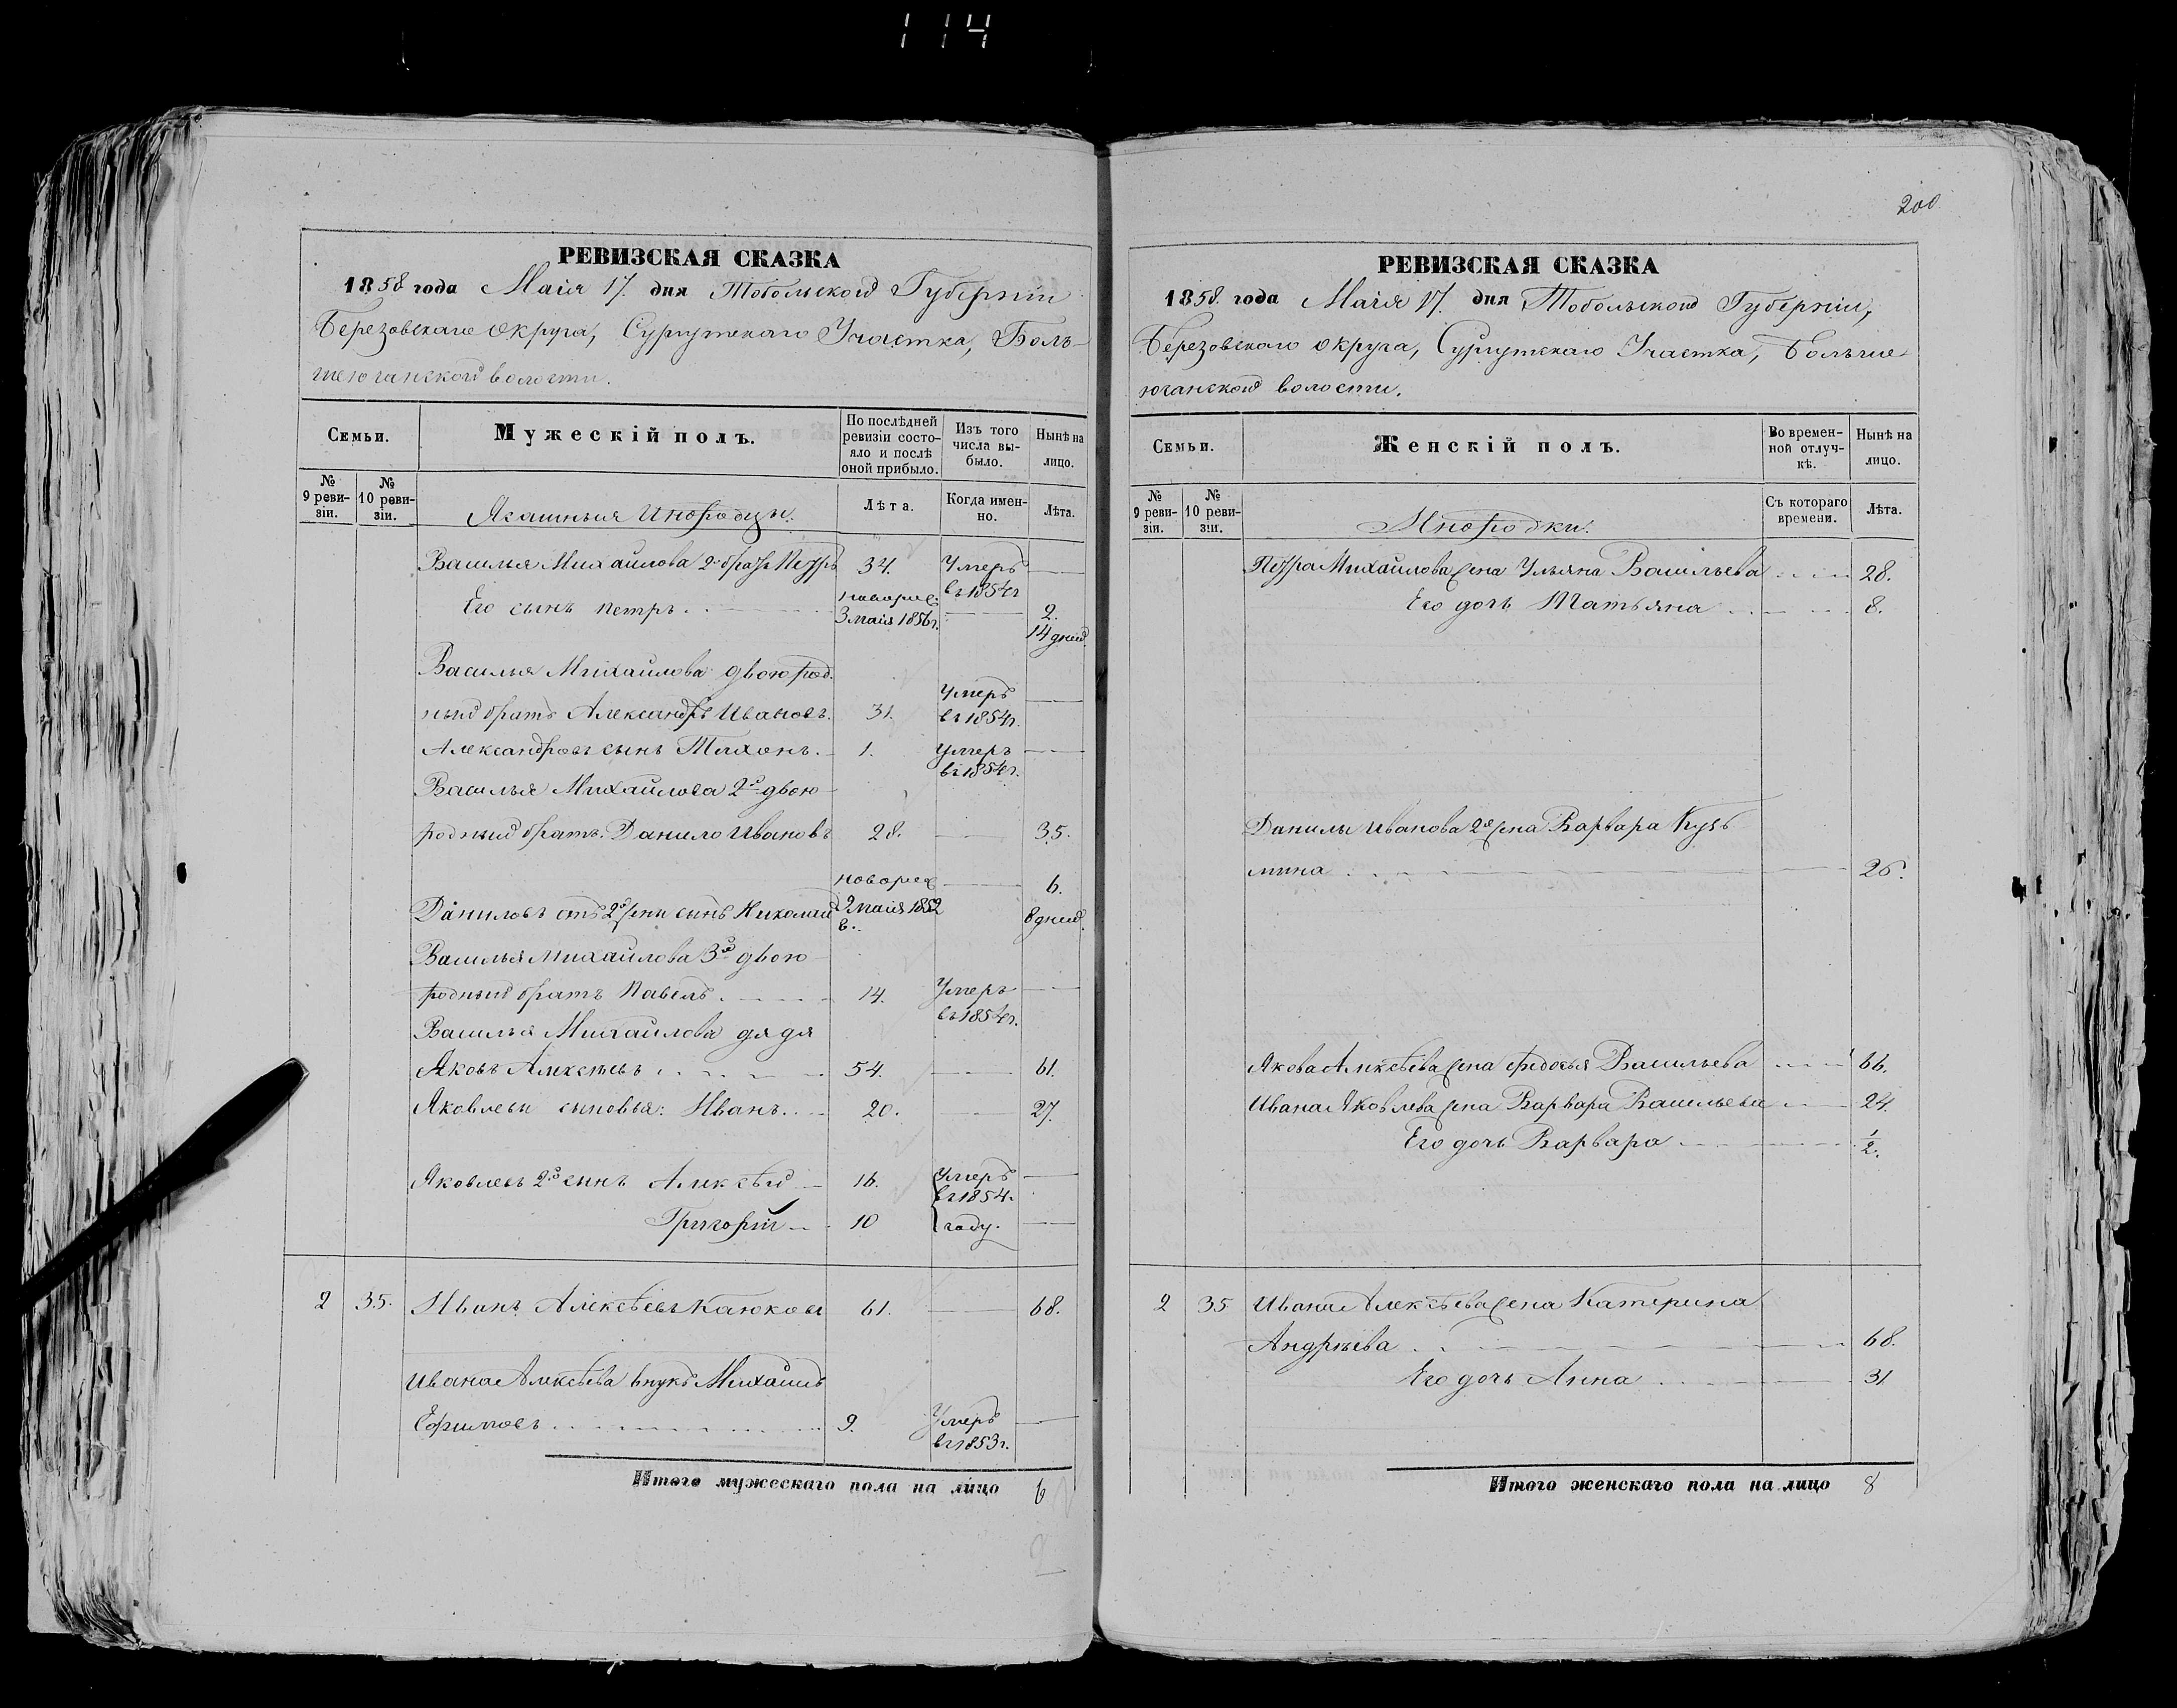 114
РЕВИЗСКАЯ СКАЗКА
1858 года Маія 17. дня Тобольской Губерніи
Березовскаго округа, Сургутскаго Участка, Боль-
шеюганской волости.
Семьи.
Мужескій полъ.
По послѣдней ревизіи состо-яло и послѣ оной прибыло.
Изъ того числа вы-было.
Нынѣ на лицо.
№ 9 реви-зіи.
№ 10 реви-зіи.
Ясашныя Инородцы.
Лѣта.
Когда имен-но.
Лѣта.
Василья Михайлова 2й братъ Петръ 34. Умеръ въ 1854г
Его сынъ Петръ. новорож. 3 маія 1856г. 2. 14 дней.
Василья Михайлова двоюрод-
ный братъ Александръ Ивановъ. 31. Умеръ въ 1854г.
Александровъ сынъ Тихонъ. 1. Умеръ въ 1854г.
Василья Михайлова 2й двою-
родный братъ. Данило Ивановъ 28. 35.
Даниловъ отъ 2й жены сынъ Николай новорож 9 маія 1852 г. 6. 8 дней.
Василья Михайлова 3й двою-
родный братъ Павелъ. 14. Умеръ въ 1854г.
Василья Михайлова дядя
Яковъ Алексѣевъ 54. 61.
Яковлевы сыновья: Иванъ. 20. 27.
Яковлевъ 2й сынъ Алексѣй 16. Умеръ въ 1854.
Григорій 10 году.
2 35. Иванъ Алексѣевъ Каюковъ 61. 68.
Ивана Алексѣева внукъ Михаилъ
Ефимовъ 9. Умеръ въ 1853г.
Итого мужескаго пола на лицо 6
2
200
РЕВИЗСКАЯ СКАЗКА
1858. года Маія 17. дня Тобольской Губерніи,
Березовскаго округа, Сургутскаго Участка, Больше-
юганской волости.
Семьи.
Женскій полъ.
Во времен-ной отлуч-кѣ.
Нынѣ на лицо.
№ 9 реви-зіи.
№ 10 реви-зіи.
Инородки.
Съ котораго времени.
Лѣта.
Петра Михайлова жена Ульяна Васильева 28.
Его дочь Татьяна 8.
Данилы Иванова 2я жена Варвара Кузь
мина 26.
Якова Алексѣева жена Федосья Васильева 66.
Ивана Яковлева жена Варвара Васильева 24.
Его дочь Варвара 1/2.
2 35 Ивана Алексѣева жена Катерина
Андрѣева 68.
Его дочь Анна 31
Итого женскаго пола на лицо 8